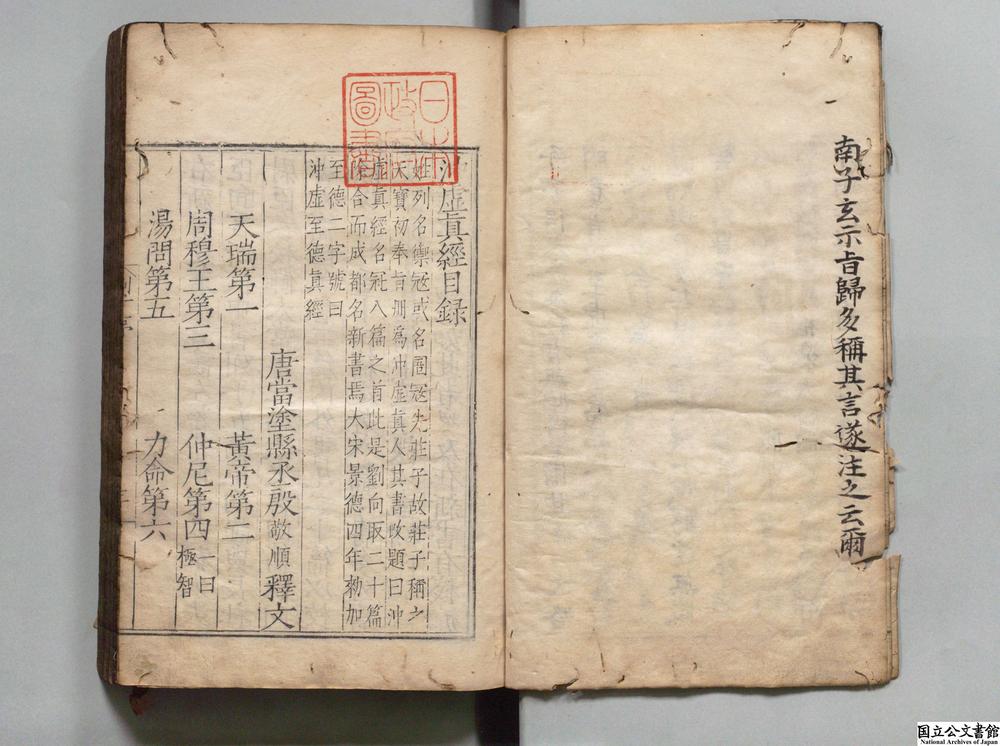 南子玄示旨歸多稱其言遂注之云爾
沖虛眞經目録
姓列名禦寇或名圄寇先莊子故莊子稱之
天寶初奉旨册爲沖虛眞人其書改題曰沖
虛眞經名冠八篇之首此是劉向取二十篇
除合而成都名新書焉大宋景德四年勑加
至德二字號曰
沖虛至德眞經
唐當塗縣丞殷敬順釋文
天瑞第一 黃帝第二
周穆王第三 仲尼第四 一曰極智
湯問第五 力命第六
日本政府圖書
国立公文書館
National Archives of Japan